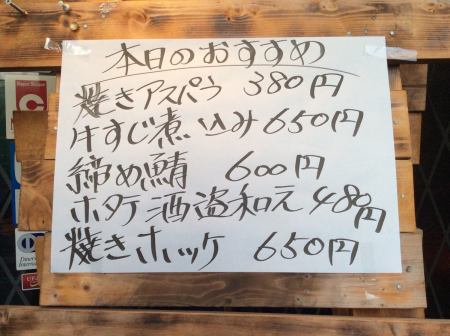 本日のおすすめ
焼きアスパラ 380円
牛すじ煮込み 650円
締め鯖 600円
ホタテ酒盗和え 480円
焼きホッケ 650円